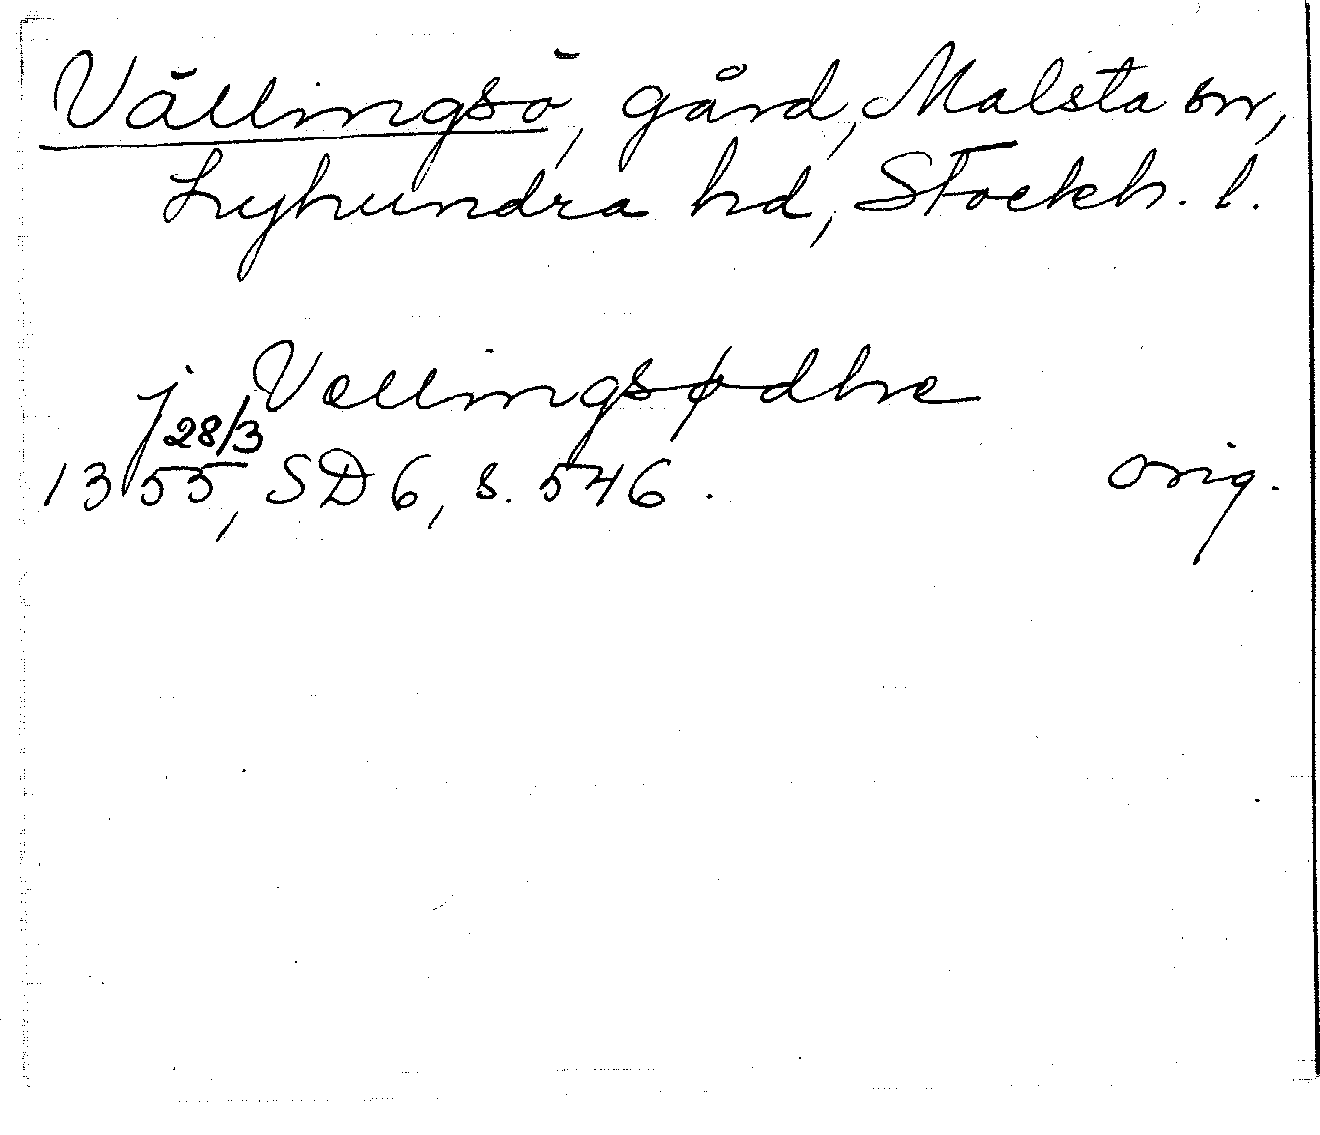 Vällingsö, gård, Malsta sn,
Lyhundra hd, Stockh. l.
j Vællingsødhræ
1355 28/3, SD 6, s. 546. orig.